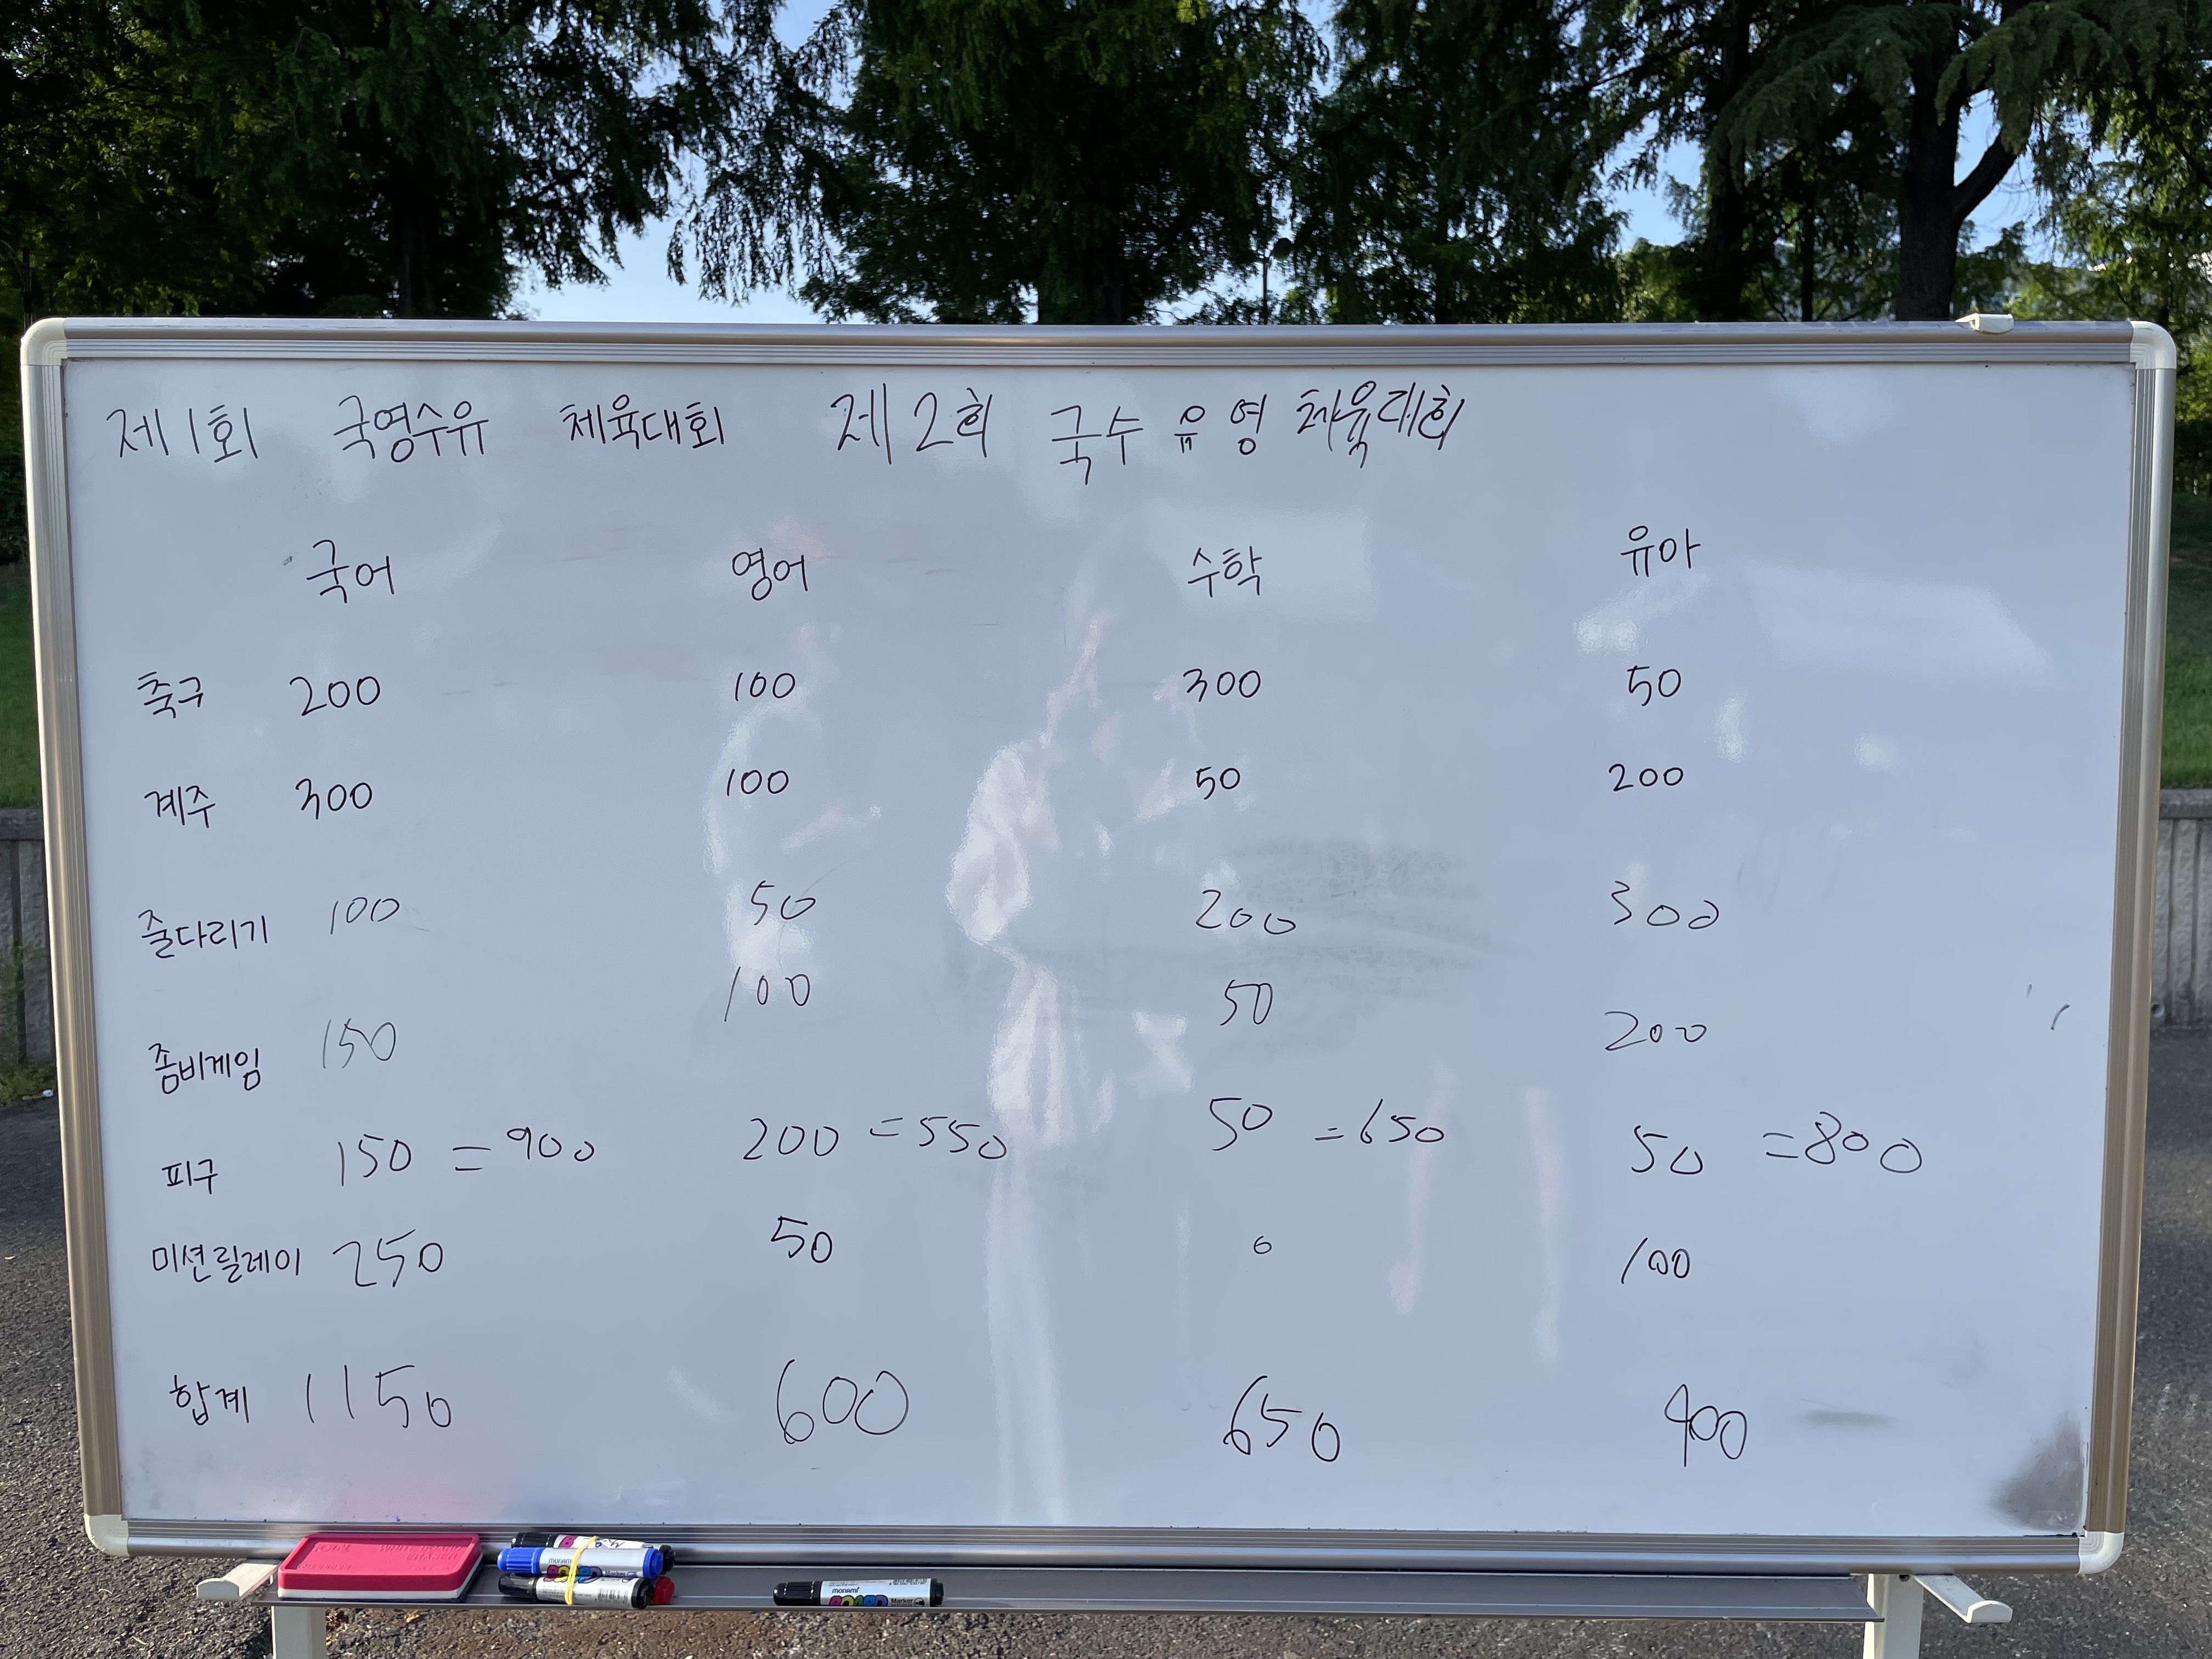 제1회 국영수유 체육대회 제2회 국수유영 체육대회
국어 영어 수학 유아
축구 200 100 300 50
계주 300 100 50 200
줄다리기 100 50 200 300
좀비게임 150 100 50 200
피구 150 =900 200 =550 50 =650 50 =800
미션릴레이 250 50 0 100
합계 1150 600 650 900
monami
monami
Marker